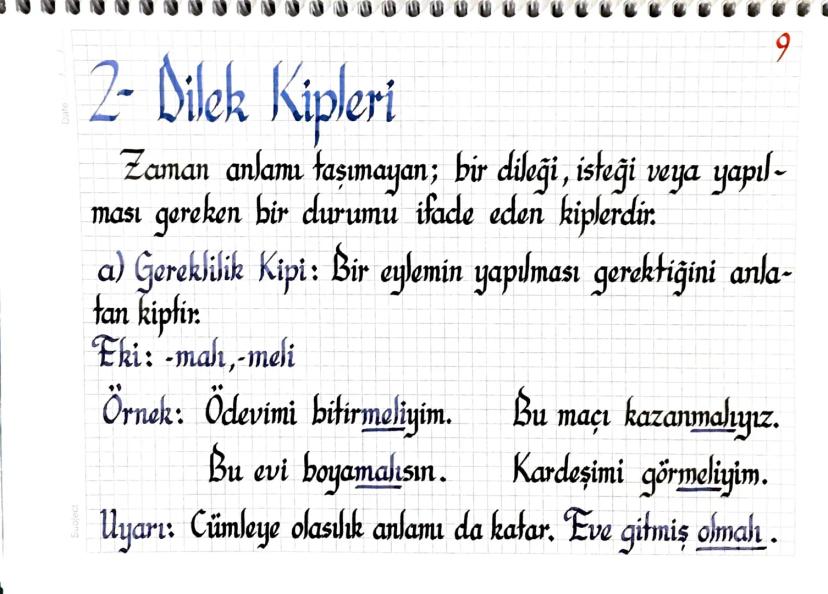 9
Date
2- Dilek Kipleri
Zaman anlamı taşımayan; bir dileği, isteği veya yapıl-
ması gereken bir durumu ifade eden kiplerdir.
a) Gereklilik Kipi: Bir eylemin yapılması gerektiğini anla-
tan kiptir.
Eki: -malı, -meli
Örnek: Ödevimi bitirmeliyim. Bu maçı kazanmalıyız.
Bu evi boyamalısın. Kardeşimi görmeliyim.
Uyarı: Cümleye olasılık anlamı da katar. Eve gitmiş olmalı.
Subject